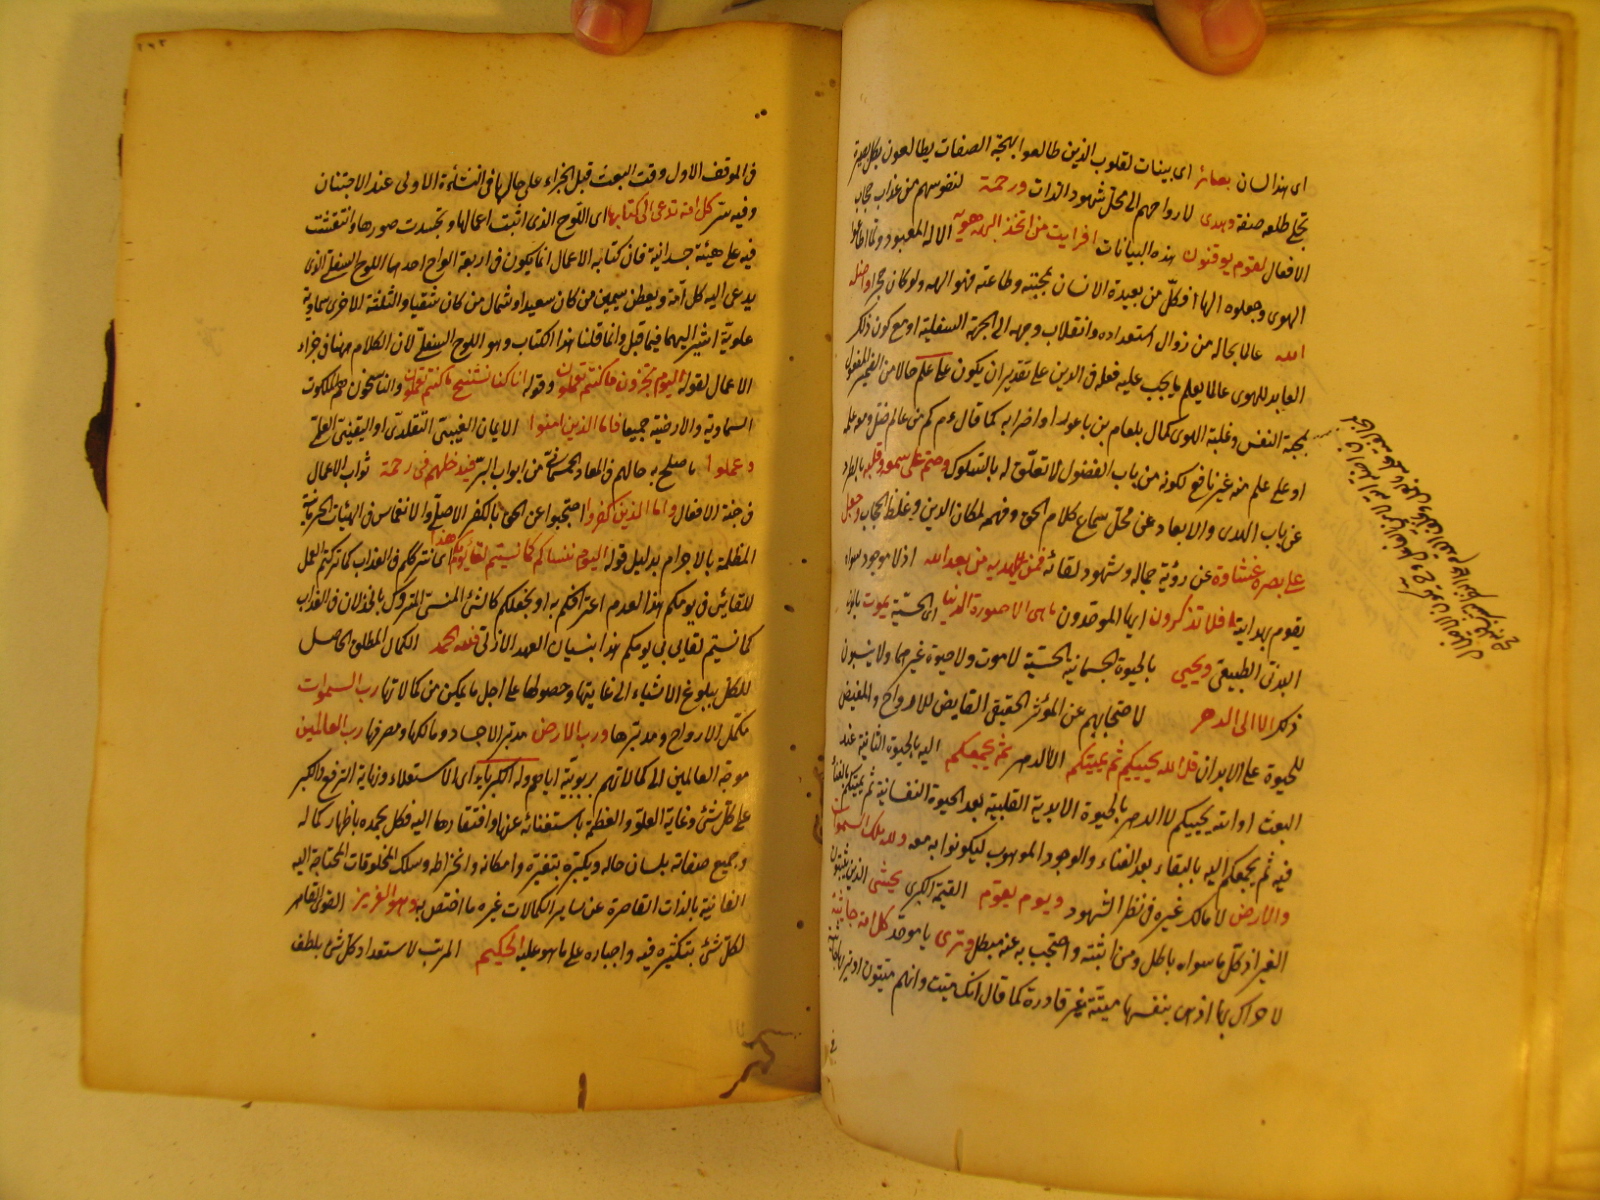 اى هذا لسان بصائر اى بينات لقلوب الذين طالعوا بهجة الصفات يطالعون بكل بصيرة
تجلى طلعه صفة وهدى لارواحهم الى محل شهود الذات ورحمة لنفوسهم من عذاب حجاب
الافعال لقوم يوقنون هذه البيانات افرايت من اتخذ الهه هويه الاله المعبود ولما اطاعوا
الهوى وجعلوه الها فكل من يعبده الانسان بمحبته وطاعته فهو الهه ولو كان حجرا واضله
الله عالما بحاله من زوال استعداده وانقلاب وجهه الى الجهة السفلية او مع كون ذلك
العابد للهوى عالما يعلم ما يجب عليه فعله فى الدين على تقدير ان يكون على علم حالا من الضمير المفعول
لمحبة النفس وغلبة الهوى كحال بلعام بن باعورا واضرابه كما قال عم كم من عالم ضل ومعه علمه
او على علم منه غير نافع لكونه من باب الفضول لا تعلق له بالسلوك وختم على سمعه وقلبه بالطرد
عن باب الهدى والابعاد عن محل سماع كلام الحق وفهم لمكان الرين وغلظ الحجاب وجعل
على بصره غشاوة عن رؤية جماله وشهود لقائه فمن يهديه من بعد الله اذ لا موجود سواه
يقوم بهدايته افلا تذكرون ايها الموحدون ما هى الا حيوة الدنيا اى الحسية نموت بالموت
البدنى الطبيعى ونحيى بالحيوة الجسمانية الحسية لا موت ولا حيوة غيرهما ولا ينسبون
ذلك الا الى الدهر لاحتجابهم عن المؤثر الحقيقى القابض للارواح والمفيض
للحيوة على الابدان قل الله يحييكم ثم يميتكم لا الدهر ثم يجمعكم اليه بالحيوة الثانية عند
البعث او الله يحييكم لا الدهر بالحيوة الابدية القلبية بعد الحيوة النفسانية ثم يميتكم بالفناء
فيه ثم يجمعكم اليه بالبقاء بعد الفناء والوجود الموهوب ليكونوا به معه ولله ملك السموات
والارض لا مالك غيره فى نظر الشهود ويوم يقوم القيمة الكبرى يخسر الذين يثبتون
الغير اذ كل ما سواه باطل ومن اثبته واحتجب به عنه مبطل وترى يا موحد كل امة جاثية
لا حراك بها اذ هى بنفسها ميتة غير قادرة كما قال انك ميت وانهم ميتون او
فى الموقف الاول وقت البعث قبل الجزاء على حالها فى النشئة الاولى عند الاجتنان
وفيه سر كل امة تدعى الى كتابها اى اللوح الذى اثبت اعمالها وتجسدت صورها وانتقشت
فيه على هيئة جسدانية فان كتابة الاعمال انما يكون فى اربعة الواح احدها اللوح السفلى الذى
يدعى اليه كل امة ويعطى بيمين من كان سعيدا وشمال من كان شقيا والثلثة الاخرى سماوية
علوية اشير اليها فيما قبل وانما قلنا هذا الكتاب وهو اللوح السفلى لان الكلام ههنا فى جزاء
الاعمال لقوله اليوم تجزون ما كنتم تعملون وقوله انا كنا نستنسخ ما كنتم تعملون والناسخون هم الملكوت
السماوية والارضية جميعا فاما الذين امنوا الايمان الغيبى التقليدى او اليقينى العلمى
وعملوا ما صلح به حالهم فى المعاد الجسمانى من ابواب البر فيدخلهم فى رحمة ثواب الاعمال
فى جنة الافعال واما الذين كفروا احتجبوا عن الحق بالكفر الاصلى والانغماس فى الهيئات الجرمانية
المظلمة بالاجرام بدليل قوله اليوم ننساكم كما نسيتم لقاء يومكم هذا اى نترككم فى العذاب كما تركتم العمل
للقائى فى يومكم هذا لعدم اعترافكم به او نجعلكم كالشئ المنسى المتروك بالخذلان فى العذاب
كما نسيتم لقائى يومكم هذا بنسيان العهد الازلى فلله الحمد الكمال المطلق الحاصل
للكل ببلوغ الاشياء الى غاياتها وحصولها على اجل ما يمكن من كمالاتها رب السموات
مكمل الارواح ومدبرها ورب الارض مدبر الاجساد ومالكها ومصرفها رب العالمين
موجه العالمين الى كمالاتهم بربوبيته اياهم وله الكبرياء اى الاستعلاء ونهاية الترفع والكبر
على كل شئ وغاية العلو والعظمة باستغنائه عنها وافتقارها اليه فكل يحمده باظهار كماله
وجميع صفاته بلسان حاله ويكبره بتغيره وامكانه وانخراطه فى سلك المخلوقات المحتاجة اليه
الفانية بالذات القاصرة عن ساير الكمالات غيره ما اختص به وهو العزيز القوى القاهر
لكل شئ بتكبره فيه واجباره على ما هو عليه الحكيم المرتب لاستعداد كل شئ بلطف